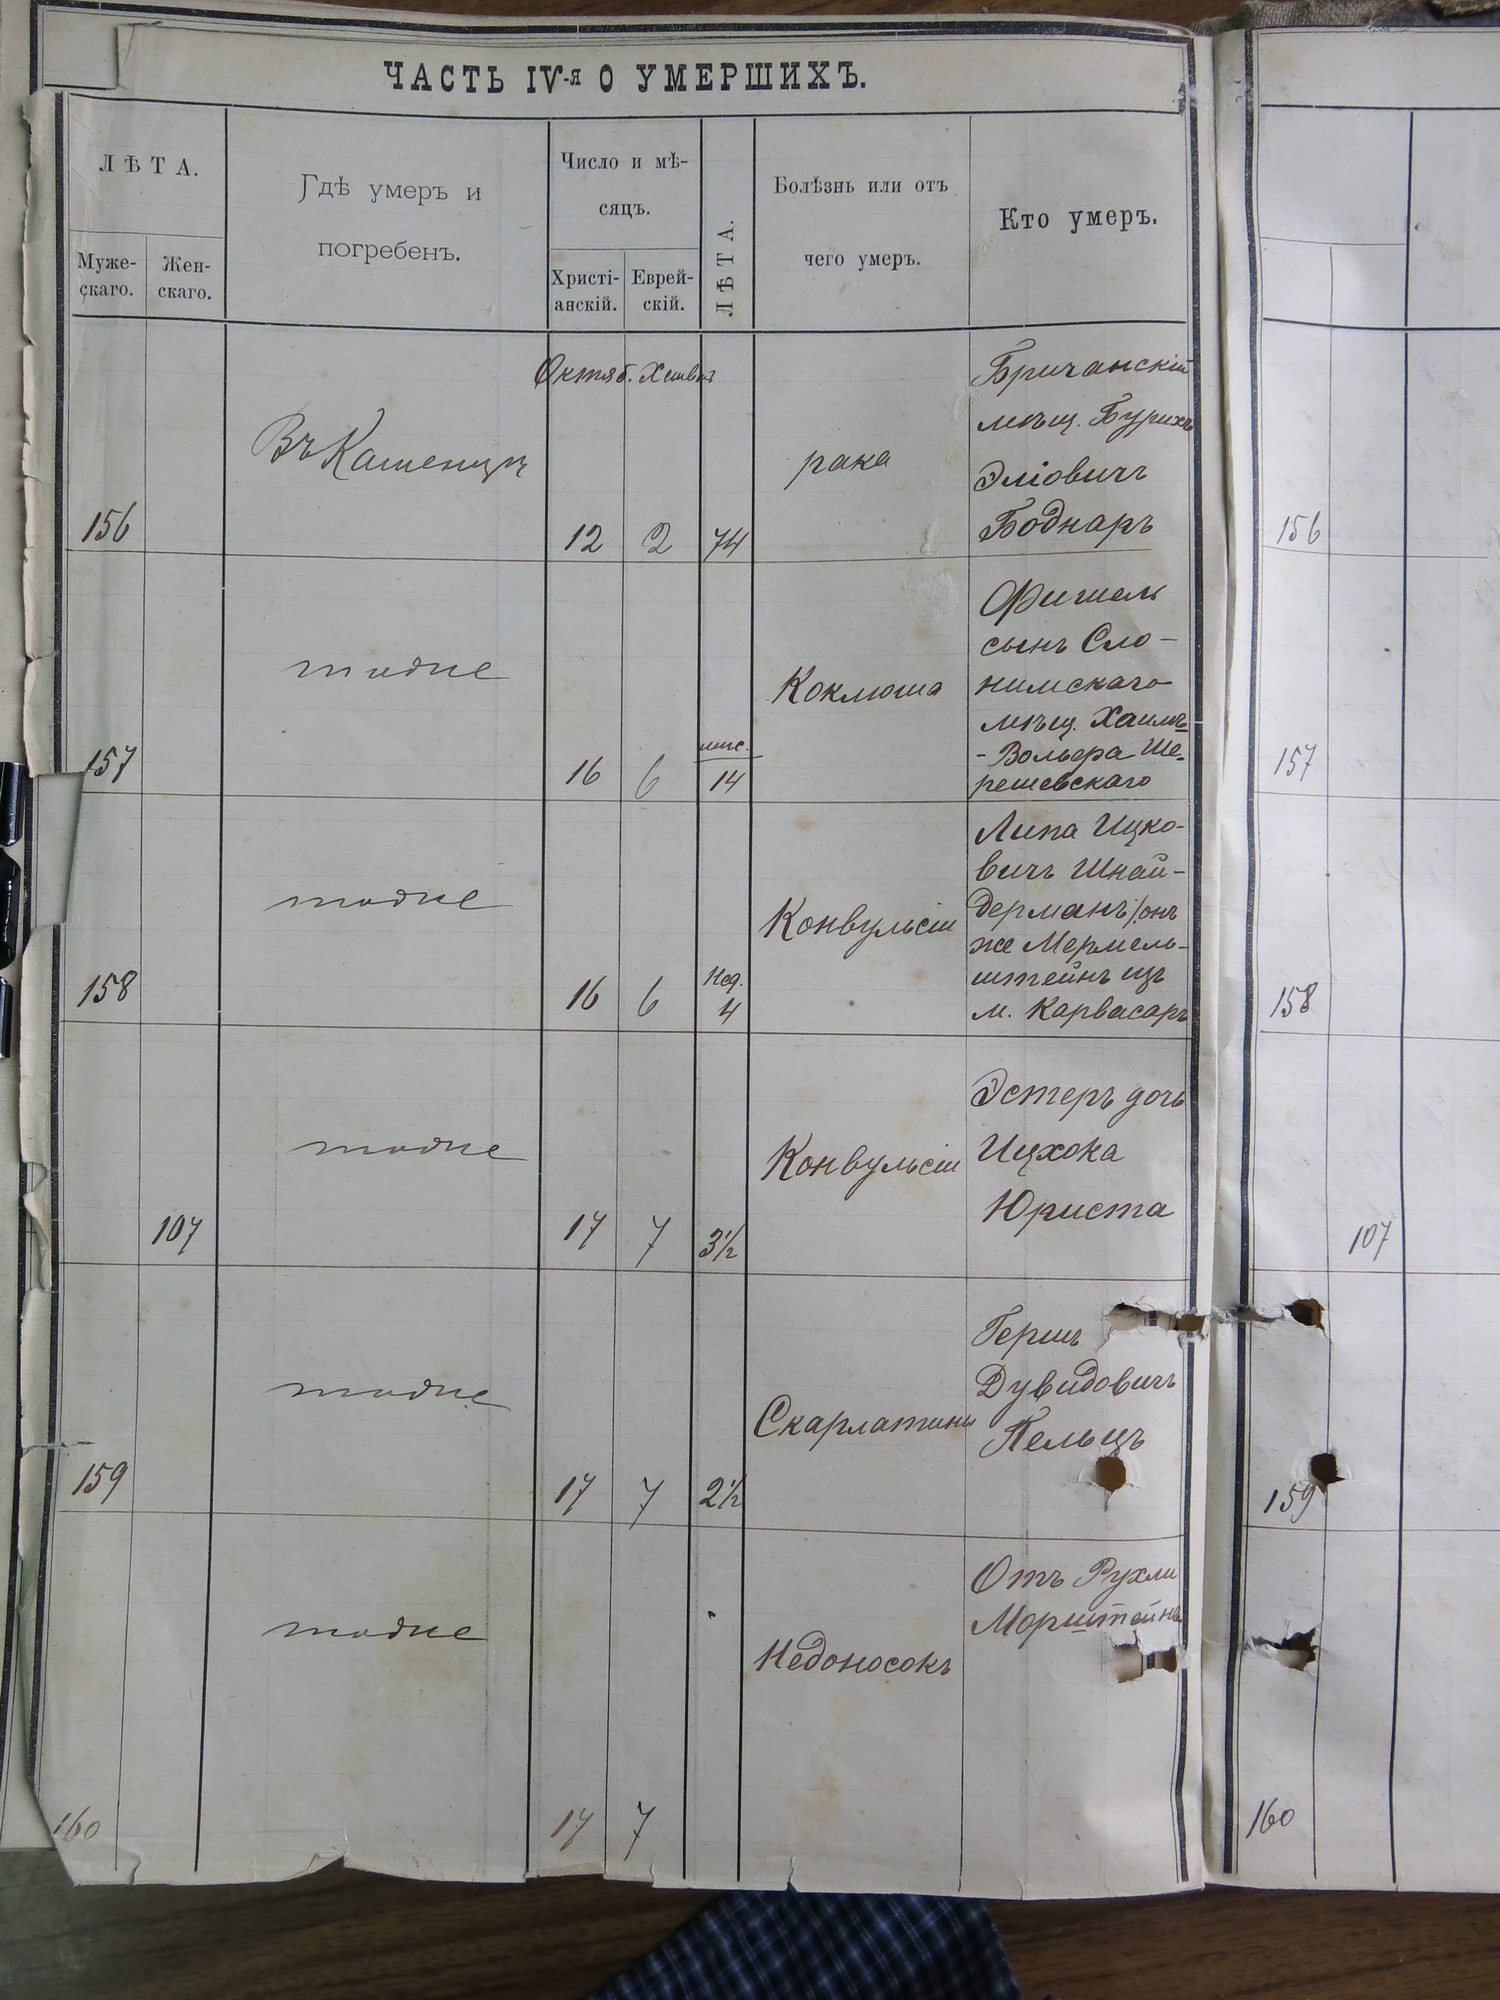 ЧАСТЬ IV-я О УМЕРШИХЪ.
ЛѢТА.
Муже-
скаго.
Жен-
скаго.
Гдѣ умеръ и
погребенъ.
Число и мѣ-
сяцъ.
Христі-
анскій.
Еврей-
скій.
ЛѢТА.
Болѣзнь или отъ
чего умеръ.
Кто умеръ.
Октяб.
156
Въ Каменцѣ
12
2
74
рака
Бричанскій
мѣщ. Бурихъ
Эліовичъ
Боднаръ
156
157
тоже
16
6
мѣс.
14
Коклюша
Фишель
сынъ Сло-
нимскаго
мѣщ. Хаимъ-
-Вольфа Ше-
решевскаго
157
158
тоже
16
6
Нед.
4
Конвульсіи
Липа Ицко-
вичъ Шнай-
дерманъ/онъ
же Мермель-
штейнъ изъ
м. Карвасаръ
158
107
тоже
17
7
3½
Конвульсіи
Эстеръ дочь
Ицхока
Юриста
107
159
тоже
17
7
2½
Скарлатины
Гершъ
Дувидовичъ
Пельцъ
159
160
тоже
17
7
Недоносокъ
Отъ Рухли
Морштейнъ
160